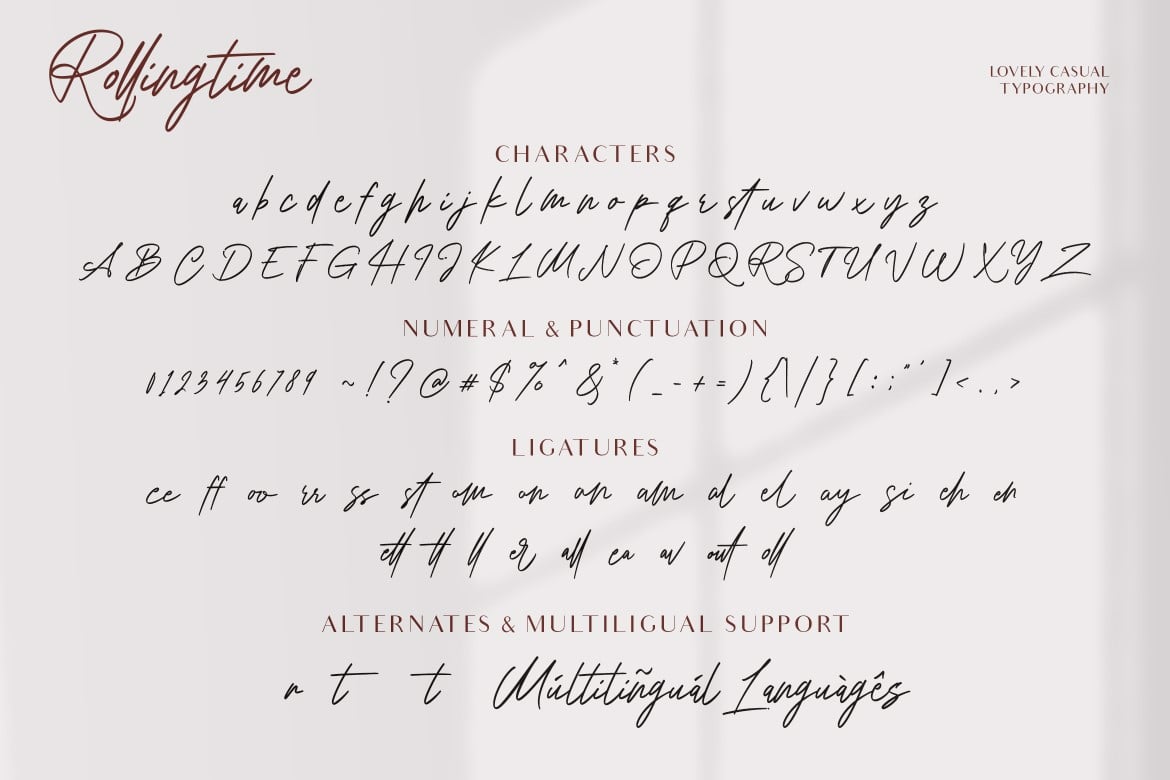 Rollingtime
LOVELY CASUAL
TYPOGRAPHY
CHARACTERS
a b c d e f g h i j k l m n o p q r s t u v w x y z
A B C D E F G H I J K L M N O P Q R S T U V W X Y Z
NUMERAL & PUNCTUATION
0 1 2 3 4 5 6 7 8 9 ~ ! ? @ # $ % ^ & * ( _ - + = ) { \ | / } [ : ; " ' ] < . , >
LIGATURES
ee ff oo rr ss st om on an am al el ay si ch en
ett tt ll er all ea av out oll
ALTERNATES & MULTILIGUAL SUPPORT
r t t Múltitiñguál Languàgês